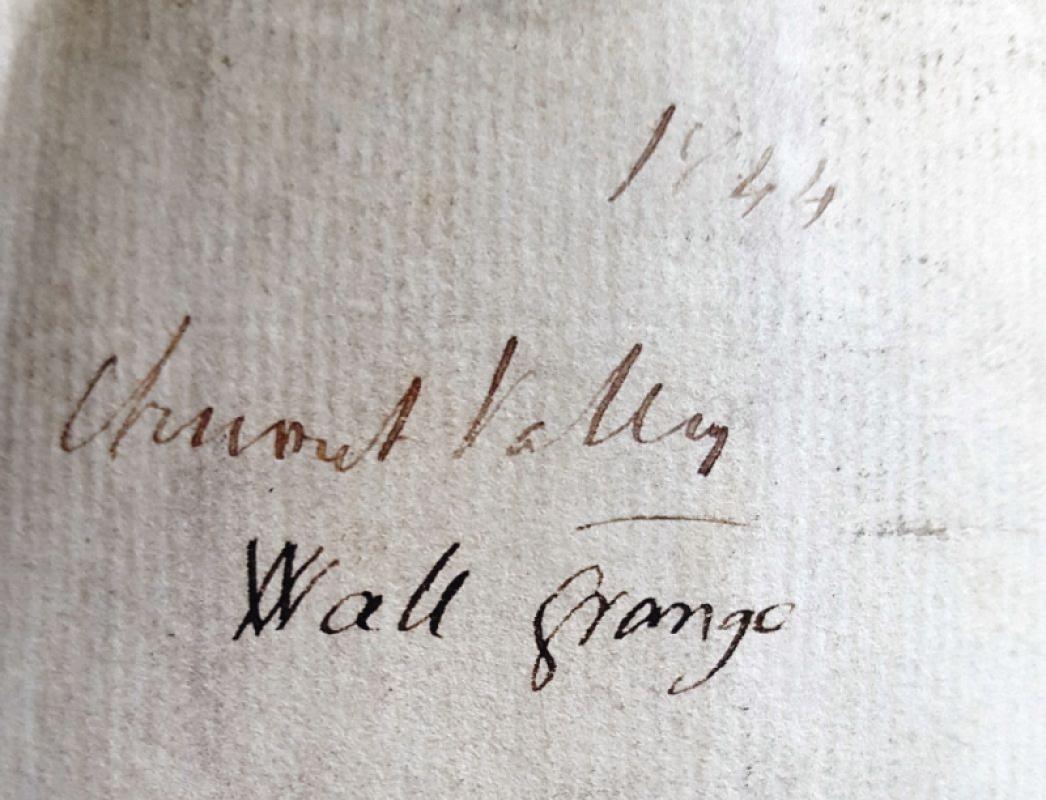 1844
Churnet Valley
Wall Grange